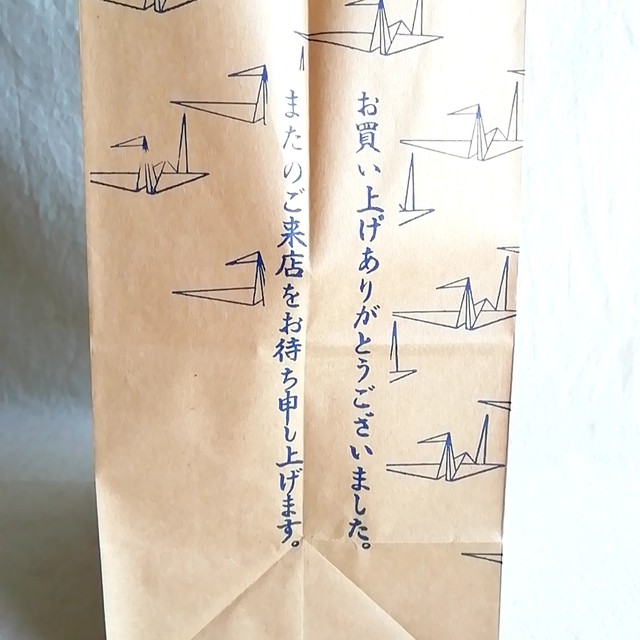 お買い上げありがとうございました。
またのご来店をお待ち申し上げます。